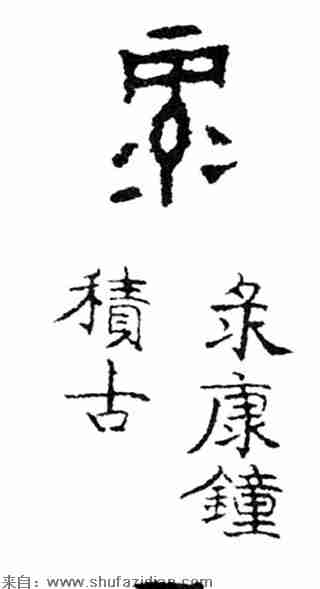 彔
彔康鐘
積古
来自：www.shufazidian.com